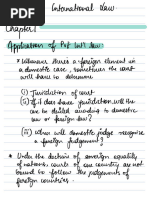 International Law
Chapter 1
Application of Pvt Int'l law:
* Whenever there's a foreign element in
a domestic case, sometimes the court
will have to determine
(i) Jurisdiction of court
(ii) If it does have jurisdiction will the
case be decided according to domestic
law or foreign law?
(iii) When will domestic judge recognise
a foreign judgement?
* Under the doctrine of sovereign equality
of nations courts of our country are not
bound to follow the judgements of
foreign countries.